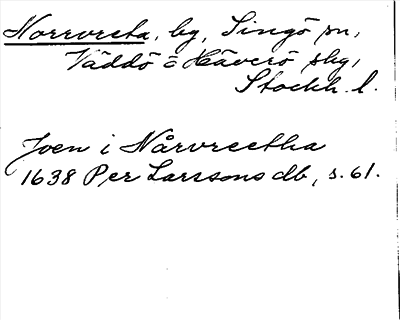 Norrvreta, by, Singö sn,
Väddö o Häverö skg,
Stockh. l.
Joen i Nårvreetha
1638 Per Larssons db, s. 61.